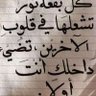 كل بقعة نور
تشعلها في قلوب
الآخرين، تضيء
داخلك أنت
أولا.